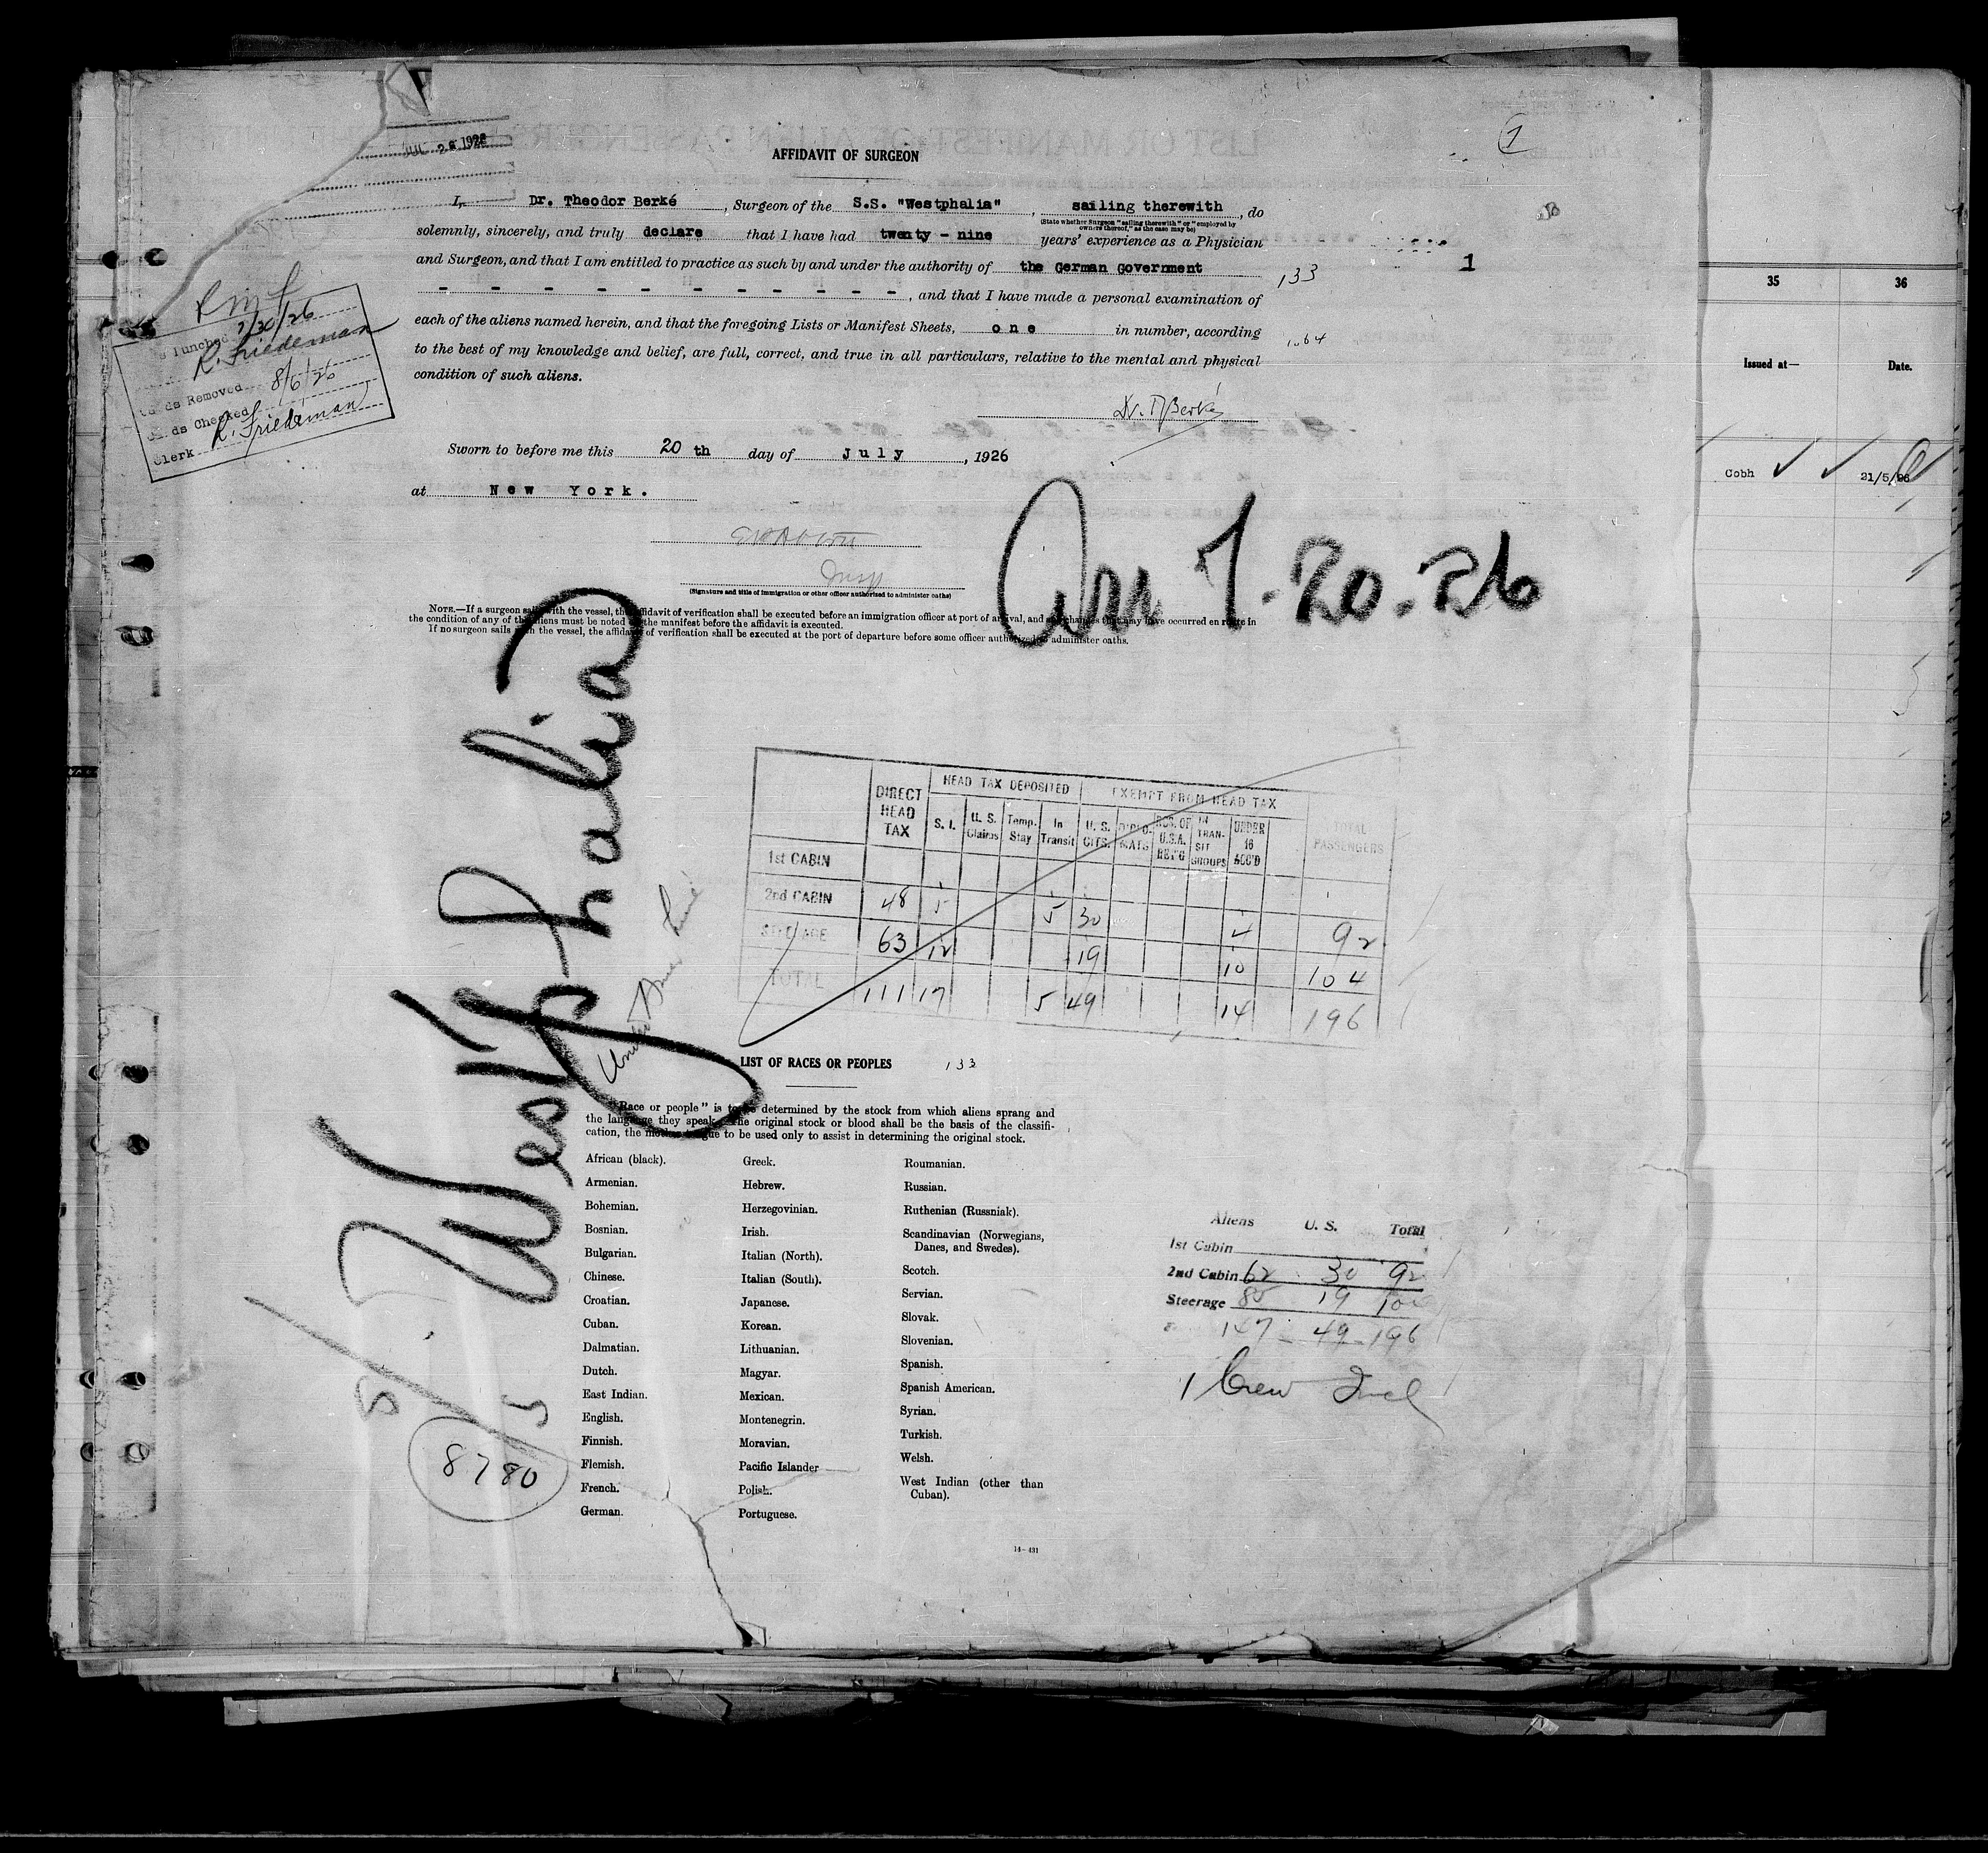 1
JUL 28 1926
AFFIDAVIT OF SURGEON
I, Dr. Theodor Berké, Surgeon of the S.S. "Westphalia", sailing therewith, do
(State whether Surgeon "sailing therewith" or "employed by owners thereof," as the case may be)
solemnly, sincerely, and truly declare that I have had twenty - nine years' experience as a Physician
and Surgeon, and that I am entitled to practice as such by and under the authority of the German Government
133
1
- - - - - - - - - - , and that I have made a personal examination of
each of the aliens named herein, and that the foregoing Lists or Manifest Sheets, one in number, according
to the best of my knowledge and belief, are full, correct, and true in all particulars, relative to the mental and physical
condition of such aliens.
Dr. T Berké
Sworn to before me this 20 th day of July, 1926
at New York.
Insp
(Signature and title of immigration or other officer authorized to administer oaths)
NOTE.—If a surgeon sails with the vessel, the affidavit of verification shall be executed before an immigration officer at port of arrival, and any changes that may have occurred en route in
the condition of any of the aliens must be noted on the manifest before the affidavit is executed.
If no surgeon sails with the vessel, the affidavit of verification shall be executed at the port of departure before some officer authorized to administer oaths.
7/30/26
R. Friedeman
Cards Removed 8/6/26
Cards Checked
R. Friedeman
Clerk
35 36
Issued at— Date.
Cobh 21/5/26
Arr 7.20.26
Westphalia
United Amer Line
HEAD TAX DEPOSITED EXEMPT FROM HEAD TAX
DIRECT HEAD TAX S. I. U. S. Claims Temp. Stay In Transit U. S. CITS. DIPLO-MATS RES. OF U.S.A. RET'G IN TRAN-SIT GROUPS UNDER 16 ACC'D TOTAL PASSENGERS
1st CABIN
2nd CABIN 48 5 5 30 4 92
STEERAGE 63 12 19 10 104
TOTAL 111 17 5 49 14 196
LIST OF RACES OR PEOPLES 133
"Race or people" is to be determined by the stock from which aliens sprang and
the language they speak. The original stock or blood shall be the basis of the classifi-
cation, the mother tongue to be used only to assist in determining the original stock.
African (black).
Armenian.
Bohemian.
Bosnian.
Bulgarian.
Chinese.
Croatian.
Cuban.
Dalmatian.
Dutch.
East Indian.
English.
Finnish.
Flemish.
French.
German.
Greek.
Hebrew.
Herzegovinian.
Irish.
Italian (North).
Italian (South).
Japanese.
Korean.
Lithuanian.
Magyar.
Mexican.
Montenegrin.
Moravian.
Pacific Islander
Polish.
Portuguese.
Roumanian.
Russian.
Ruthenian (Russniak).
Scandinavian (Norwegians,
Danes, and Swedes).
Scotch.
Servian.
Slovak.
Slovenian.
Spanish.
Spanish American.
Syrian.
Turkish.
Welsh.
West Indian (other than
Cuban).
Aliens U. S. Total
1st Cabin
2nd Cabin 62 30 92
Steerage 85 19 104
147 - 49 - 196
1 Crew Incl
8780
14—431